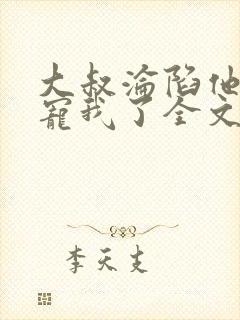 大叔淪陷他
寵我了全文
李天支